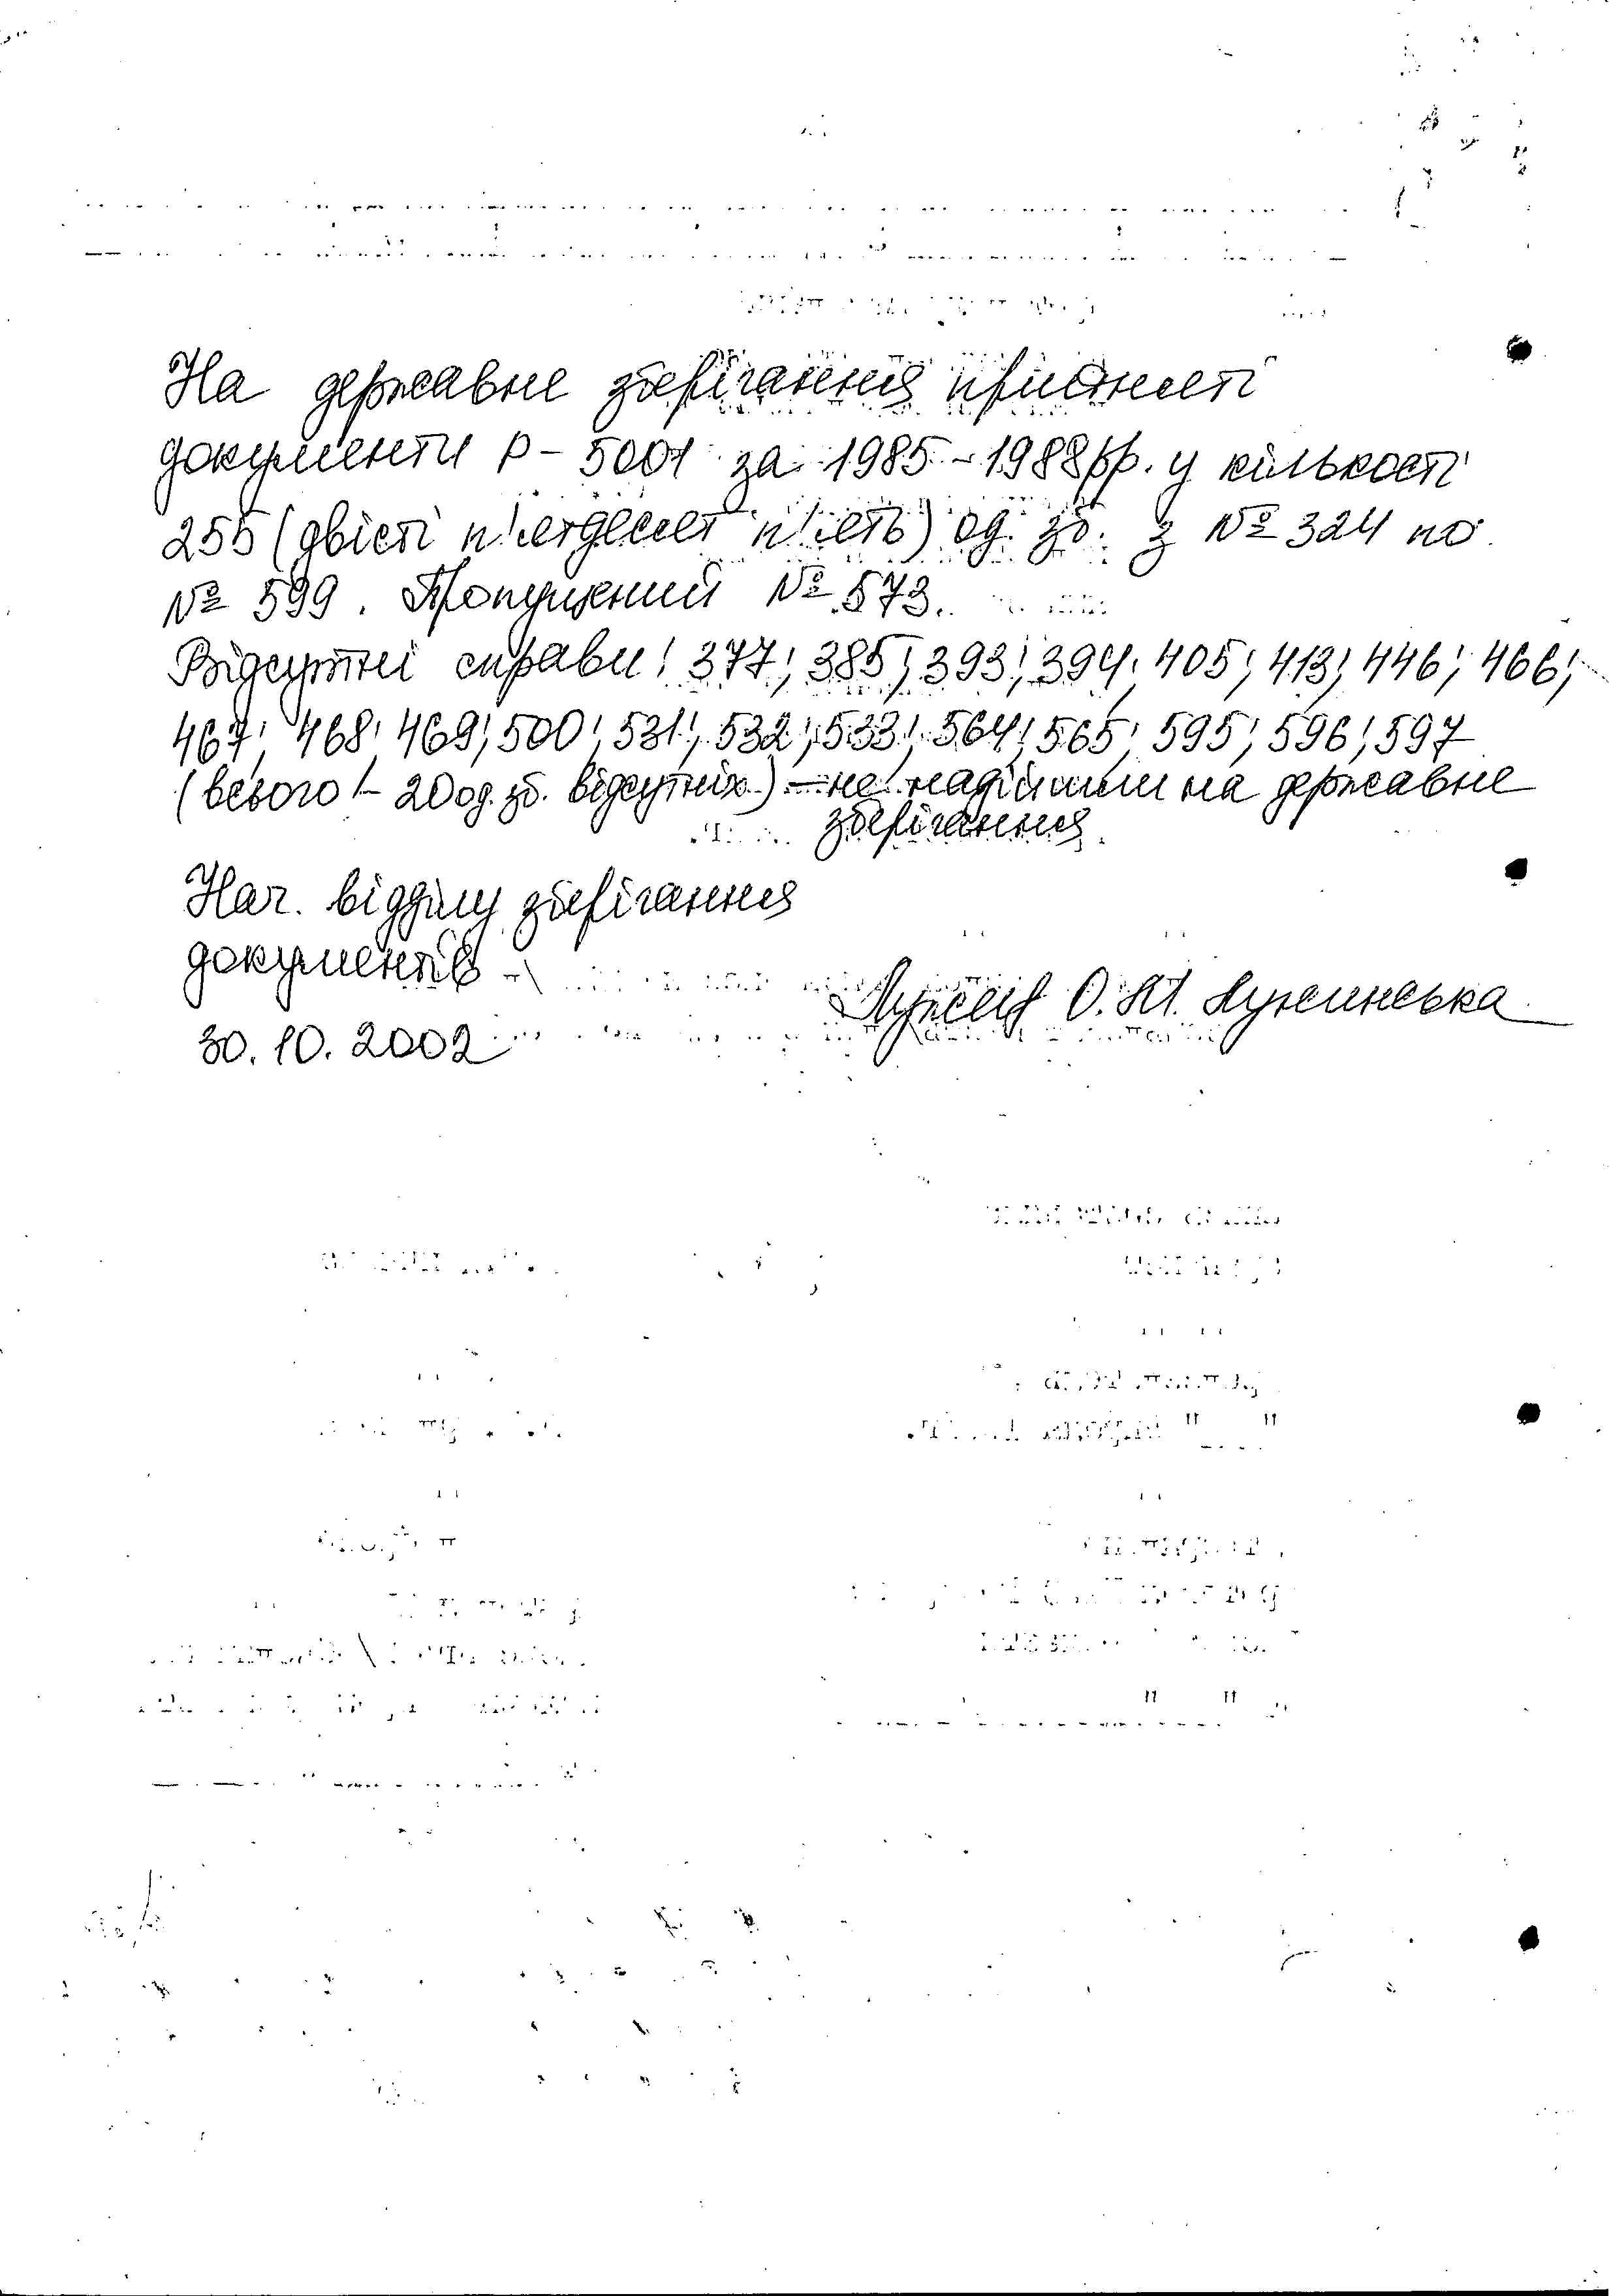 На державне зберігання прийняті
документи р-5001 за 1985-1988рр. у кількості
255 (двісті п'ятдесят п'ять) од. зб. з № 324 по
№ 599. Пропущений № 573.
Відсутні справи: 377; 385; 393; 394; 405; 413; 446; 466;
467; 468; 469; 500; 531; 532; 533; 564; 565; 595; 596; 597
(всього - 20 од. зб. відсутніх) - не надійшли на державне
зберігання.
Нач. відділу зберігання
документів - О. М. Лужинська
30.10.2002